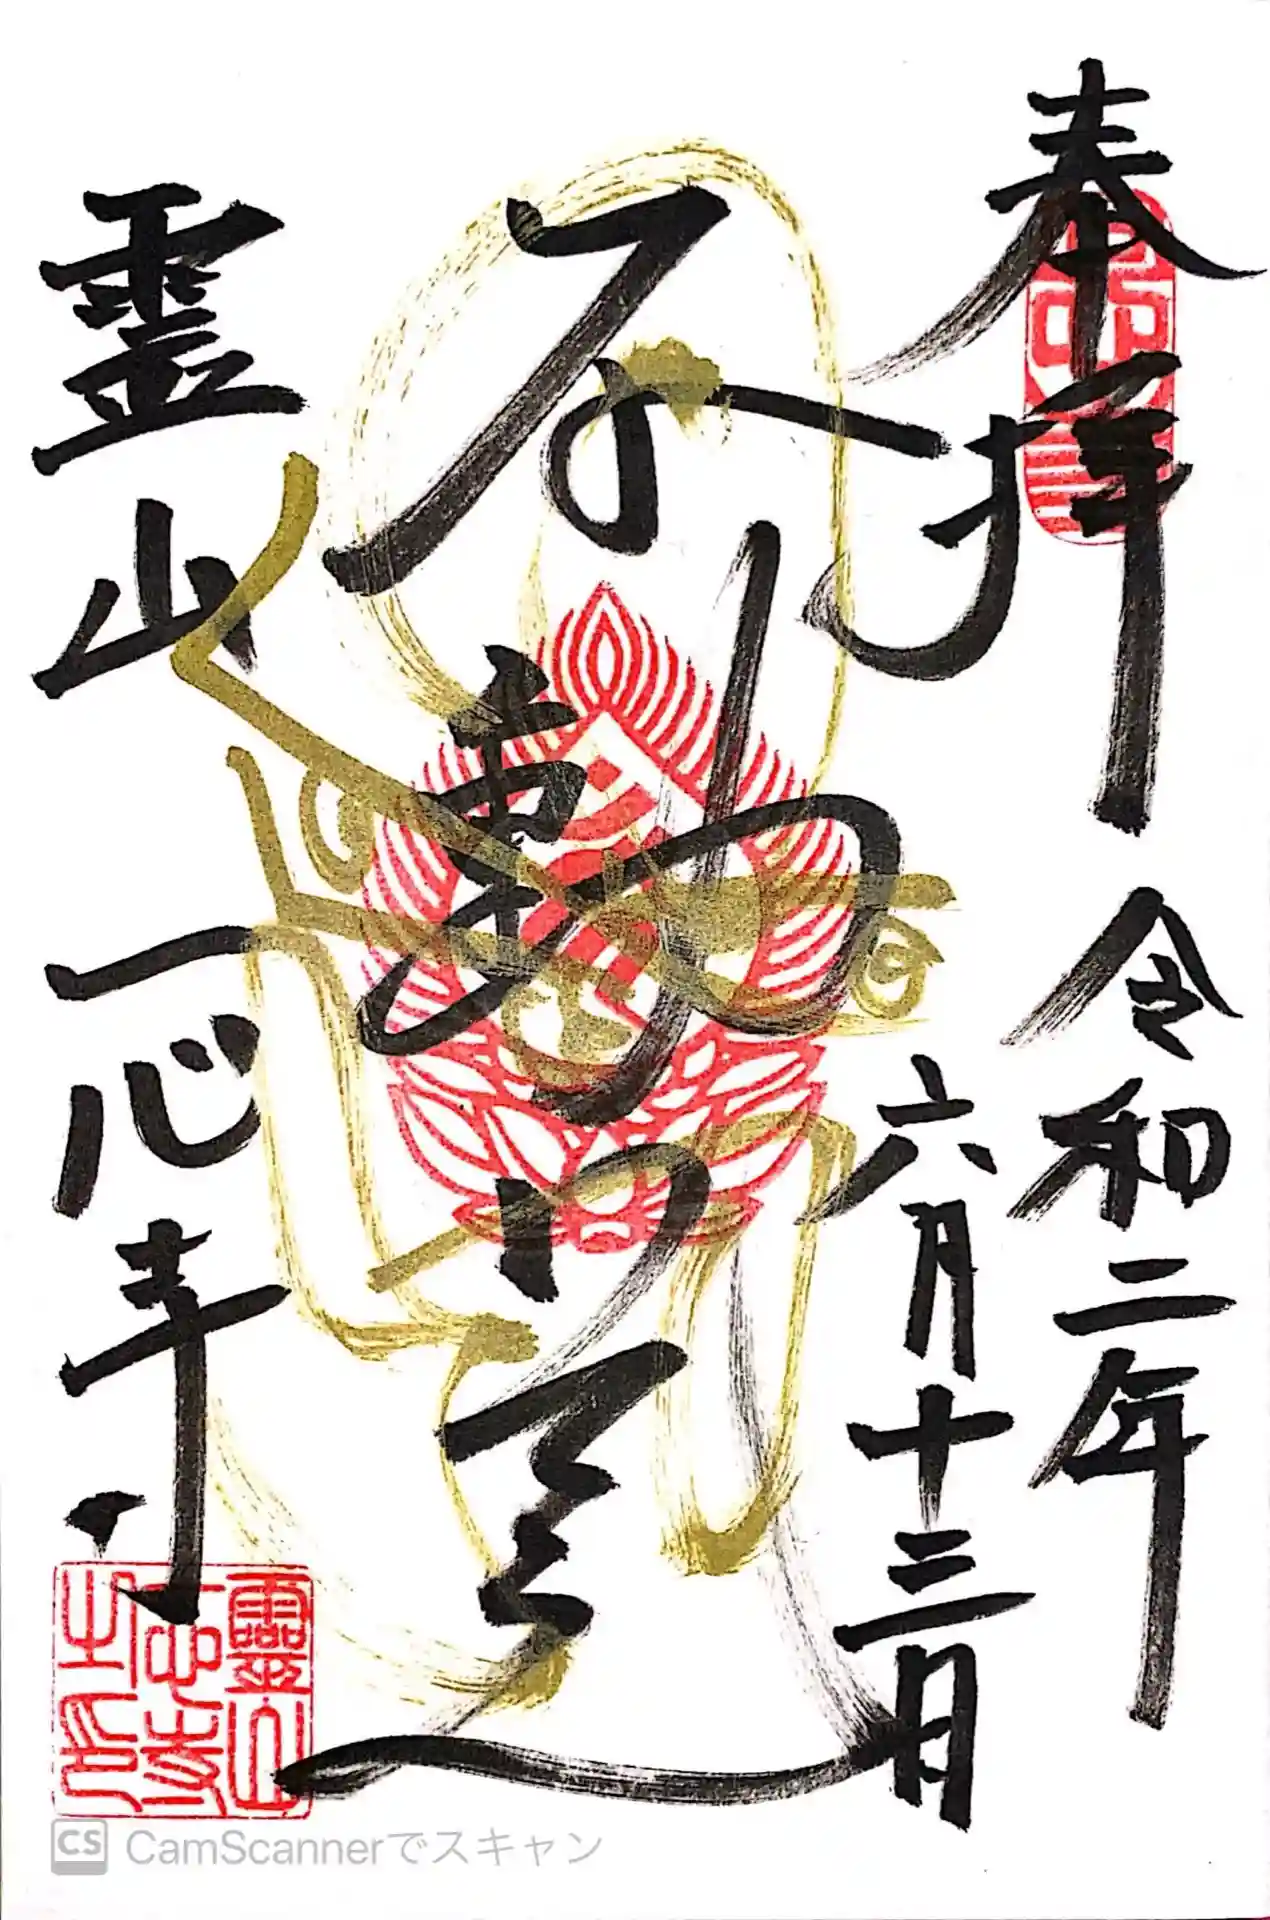 奉拝
令和二年
六月十三日
不動明王
霊山
一心寺
霊山一心寺之印
CS CamScannerでスキャン